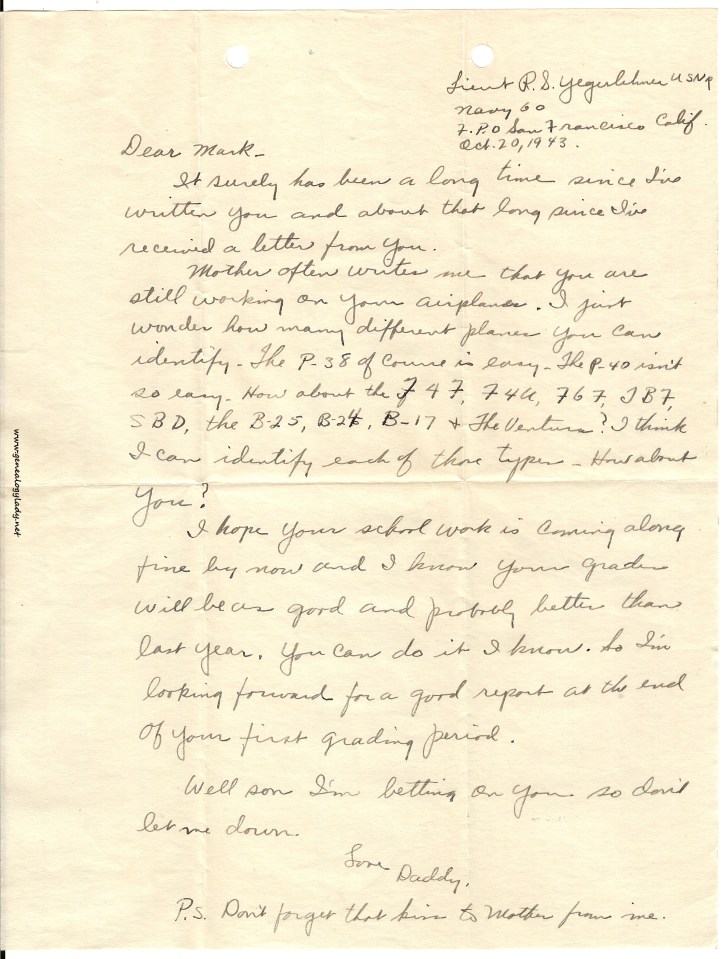 Lieut R.S. Yegerlehner USNR
Navy 60
F.P.O San Francisco Calif.
Oct. 20, 1943.
Dear Mark-
It surely has been a long time since I've
written you and about that long since I've
received a letter from you.
Mother often writes me that you are
still working on your airplanes. I just
wonder how many different planes you can
identify- The P-38 of course is easy- The P-40 isn't
so easy- How about the F4F, F4U, F6F, TBF,
SBD, the B-25, B-24, B-17 & The Ventura? I think
I can identify each of those types- How about
you?
I hope your school work is coming along
fine by now and I know your grades
will be as good and probably better than
last year. You can do it I know. So I'm
looking forward for a good report at the end
of your first grading period.
Well son I'm betting on you so don't
let me down.
Love
Daddy.
P.S. Don't forget that kiss to Mother from me.
www.genealogylady.net